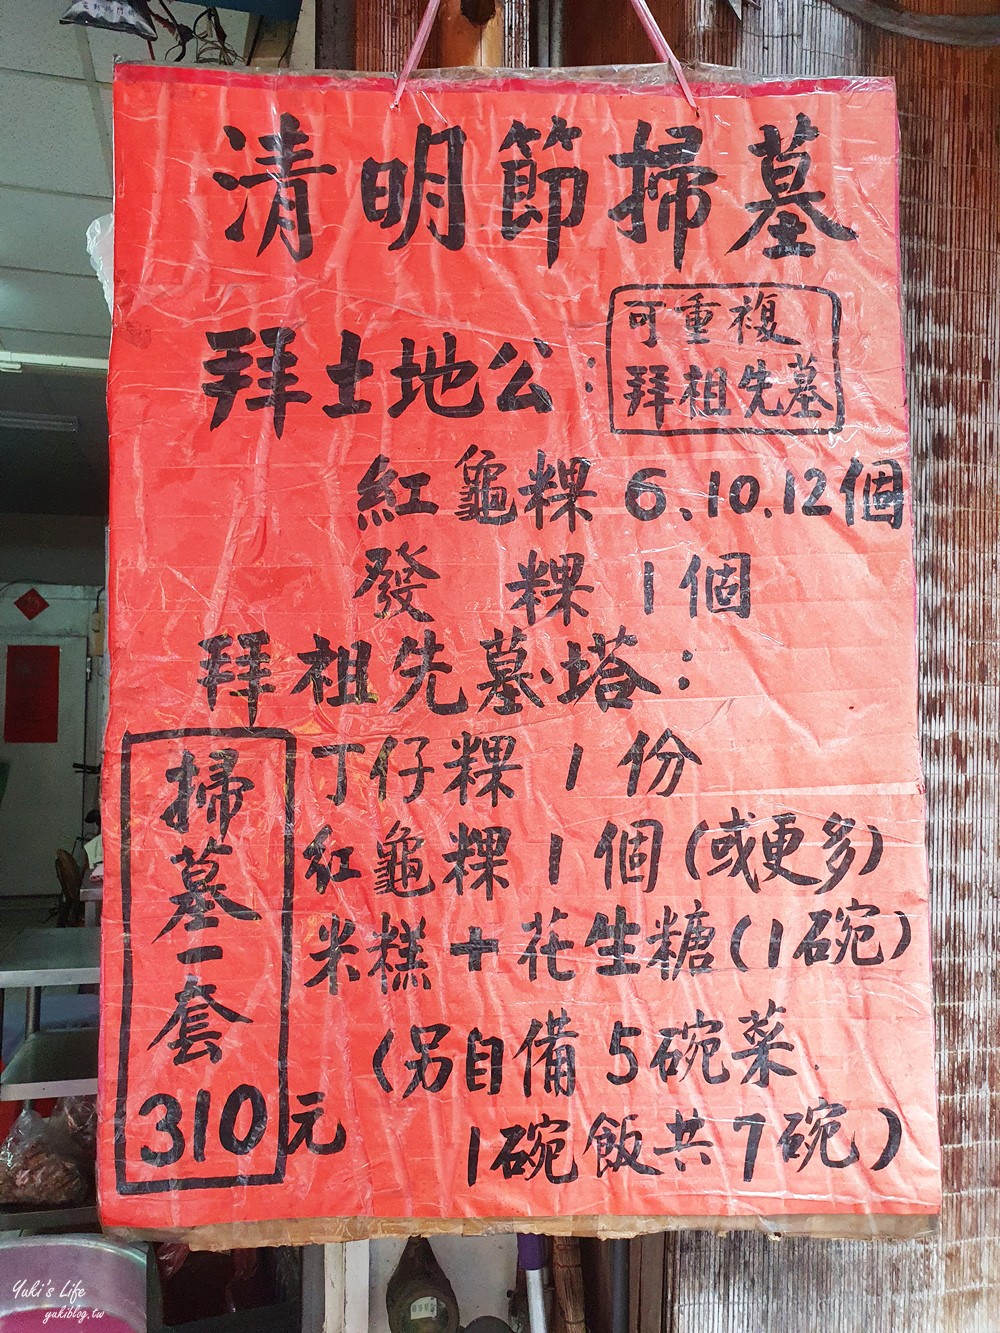 清明節掃墓
拜土地公：
可重複
拜祖先墓
紅龜粿 6、10、12個
發 粿 1個
拜祖先墓、塔：
掃墓一套
310元
丁仔粿 1份
紅龜粿 1個(或更多)
米糕+花生糖(1碗)
(另自備 5碗菜.
1碗飯共7碗)
Yuki's Life
yukiblog.tw